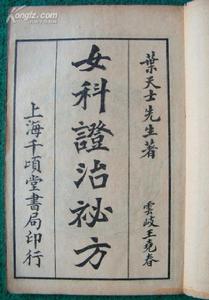 Kongfz.com
葉天士先生著
雲岐王堯春
女科證治祕方
上海千頃堂書局印行